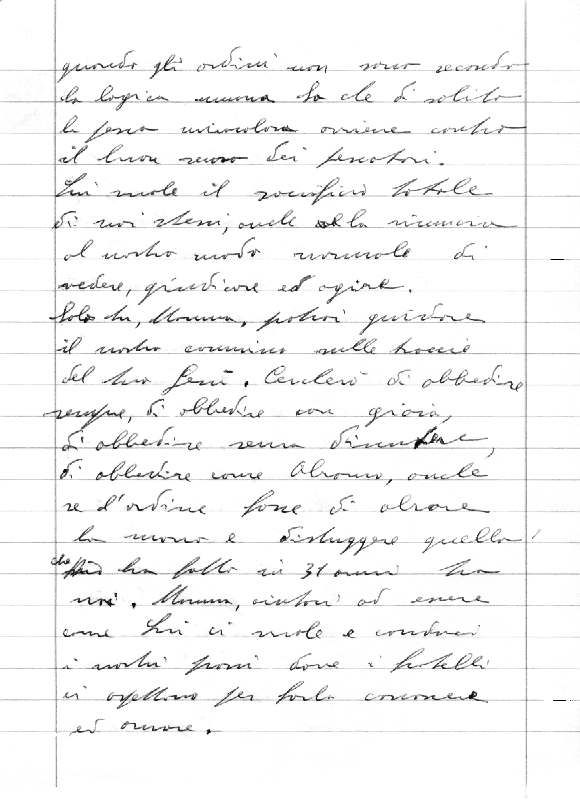 quando gli ordini non sono secondo
la logica umana. So che di solito
la pesca miracolosa avviene contro
il buon senso dei pescatori.
Lui vuole il sacrificio totale
di noi stessi, anche alla rinuncia
al nostro modo normale di
vedere, giudicare ed agire.
Solo tu, Mamma, potrai guidare
il nostro cammino sulle tracce
del tuo Gesù. Cercherò di obbedire
sempre, di obbedire con gioia,
di obbedire senza discutere,
di obbedire come Abramo, anche
se l'ordine fosse di alzare
la mano e distruggere quello
che ha fatto in 31 anni tra
noi. Mamma, aiutaci ad essere
come Lui ci vuole e conduci
i nostri passi dove i fratelli
ci aspettano per farlo conoscere
ed amare.